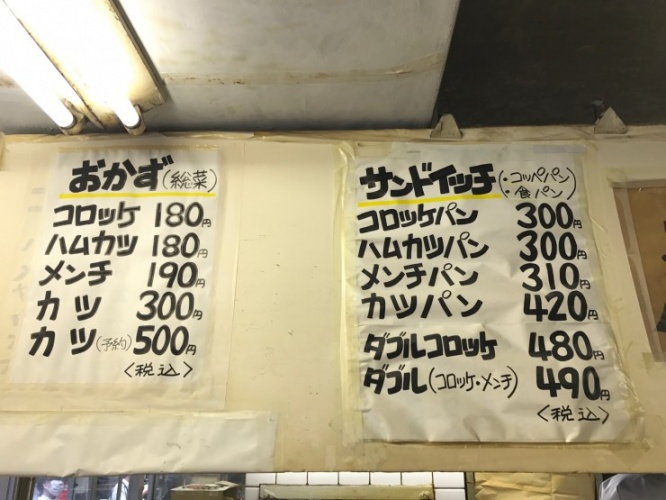 おかず(総菜)
コロッケ 180円
ハムカツ 180円
メンチ 190円
カツ 300円
カツ(予約) 500円
〈税込〉
サンドイッチ(・コッペパン ・食パン)
コロッケパン 300円
ハムカツパン 300円
メンチパン 310円
カツパン 420円
ダブルコロッケ 480円
ダブル(コロッケ・メンチ) 490円
〈税込〉